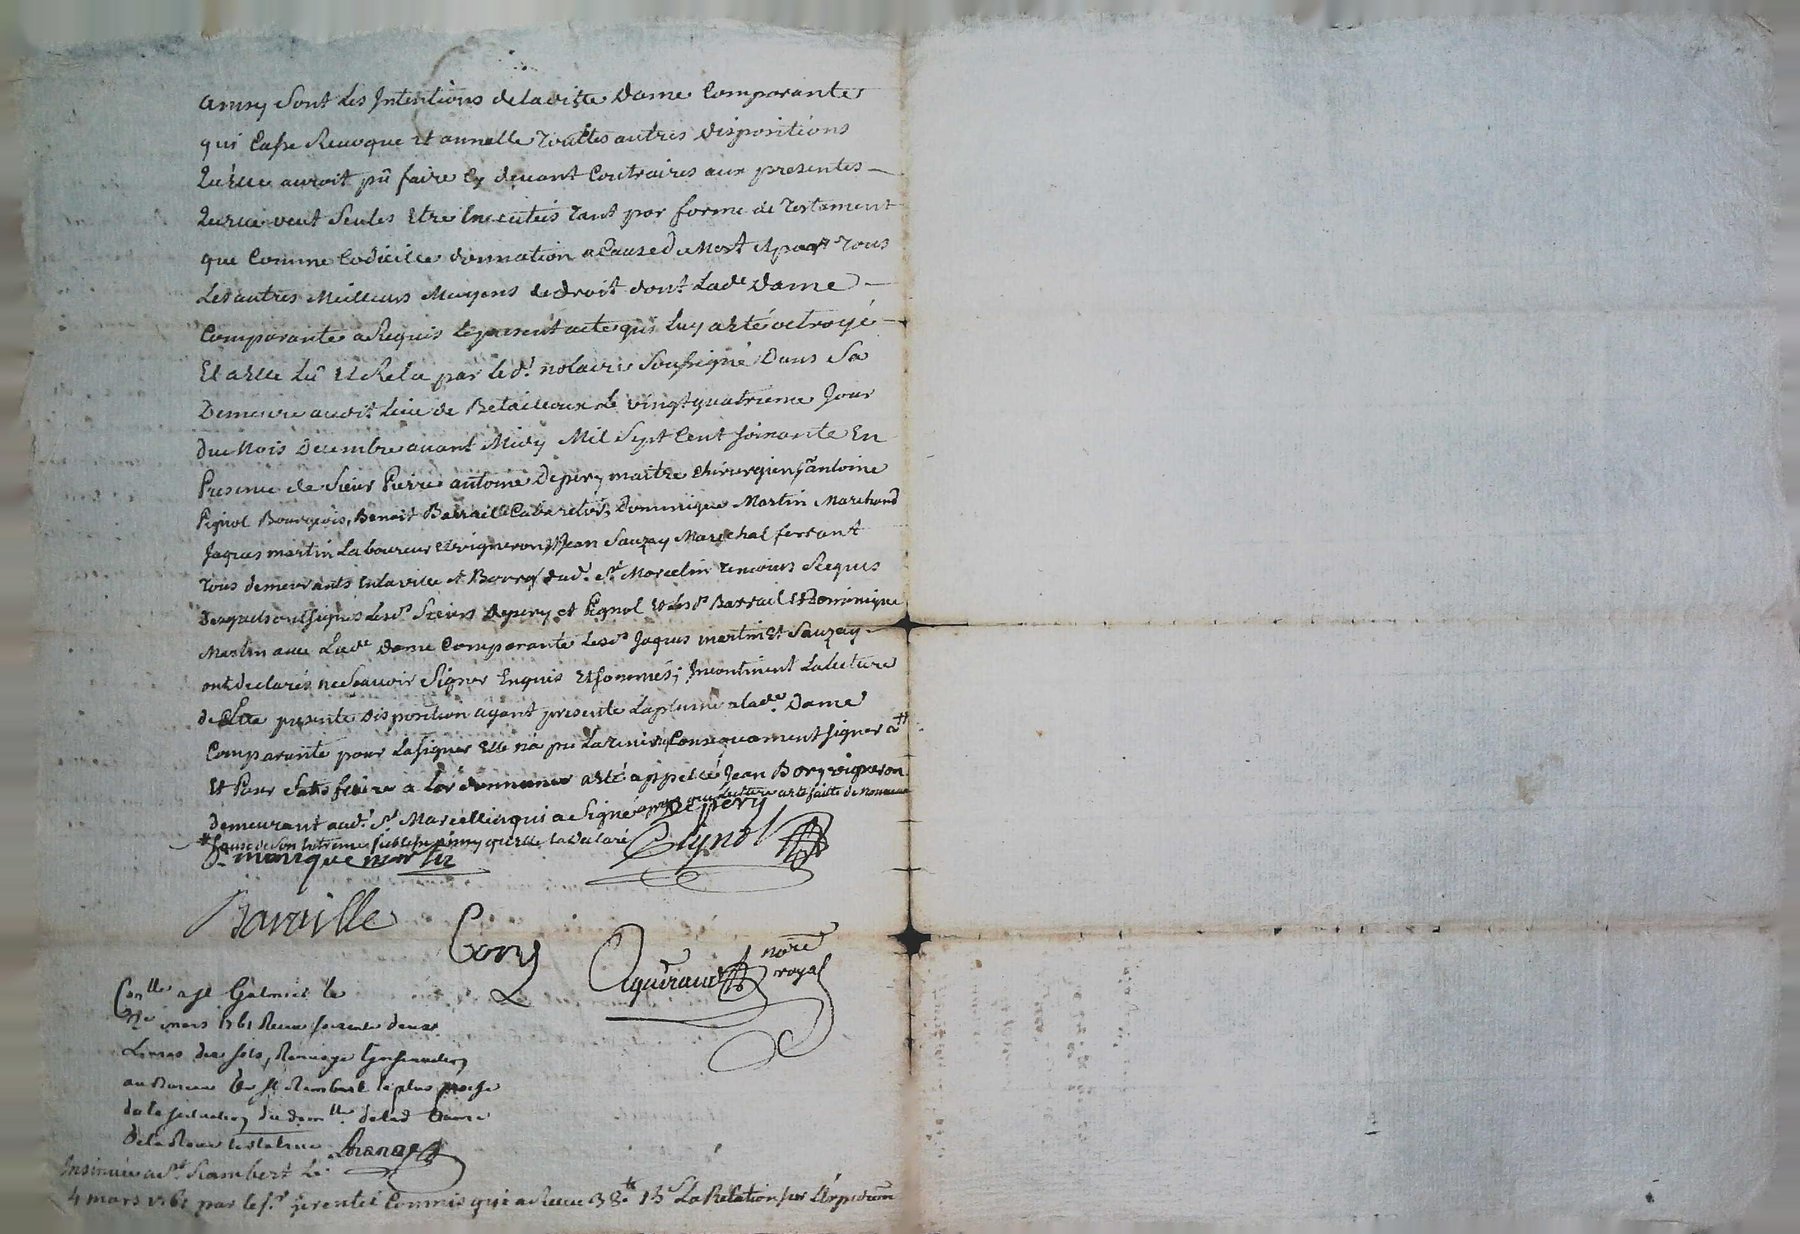 ainsy sont les Intentions de laditte Dame Comparante
qui Casse Revoque et annulle Touttes autres dispositions
qu'elle auroit pû faire Cy devant Contraires aux presentes
qu'elle veut seules etre Executées tant par forme de Testament
que Comme Codicille donnation a Cause de Mort et par Tous
les autres Meilleurs Moyens de droit dont lad.e Dame
Comparante a Requis le present acte qui luy a eté octroyé
Et a Elle Lû et Relu par le d.t notaire soussigné Dans sa
Demeure aud.t lieu de Betailloux le vingt quatrieme Jour
du Mois Decembre avant Midy Mil Sept Cent soixante En
Presence de sieur Pierre antoine Depery maitre chirurgien, antoine
Pignol Bourgeois, Benoit Barraille Cabaretier, Dominique Martin Marchand
Jaques martin Laboureur et vigneron et Jean Sauzay Marechal ferrant
Tous demeurants en la ville et Bourg dud.t S.t Marcelin temoins Requis
desquels ont signes les d.s sieurs Depery et Pignol et les d.s Barrail et Dominique
Martin avec Lad.e Dame Comparante les d.s Jaques martin et Sauzay
ont declarés ne sçavoir signer Enquis et sommés; Incontinent la lecture
de la presente disposition ayant presenté la plume a lad.e Dame
Comparante pour la signer Elle n'a pu la tenir ny Consequament signer a #
Et Pour satisfaire a l'ordonnance a eté appellé Jean Bory vigneron
demeurant aud.t S.t Marcellin qui a signé apres que lecture a eté faitte de nouveau
# Cause de son extreme foiblesse ainsy qu'elle la declaré
Depery
Do manique martin
Pignol
Baraille
Bory
Agueraud no.re royal
Con.lle a St Galmier le
mars 1761 Receu soixante deux
Livres dix sols, Renvoyé l'insinuation
au Bureau de St Rambert le plus proche
de la situation du dom.lle de lad Dame
De la Roue testatrice
Insinué a S.t Rambert le
4 mars 1761 par le s.r Commis qui a Receu 38.# 13 s La Relation sur L'Expedition